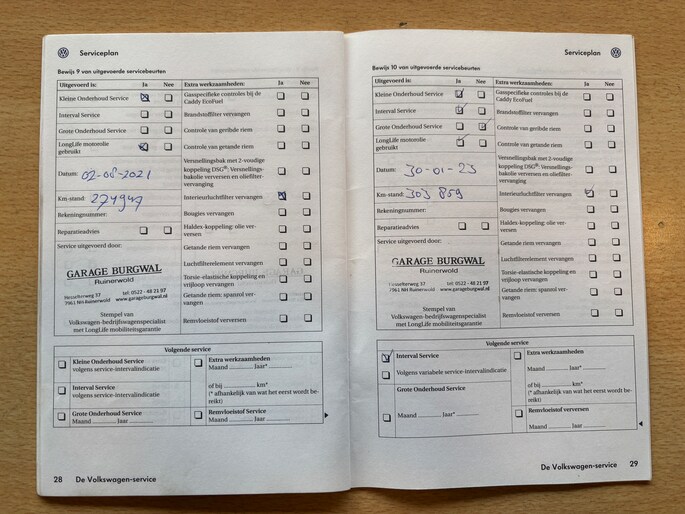 Serviceplan
Bewijs 9 van uitgevoerde servicebeurten
Uitgevoerd is: Ja Nee
Kleine Onderhoud Service
Interval Service
Grote Onderhoud Service
LongLife motorolie
gebruikt
Datum: 02-08-2021
Km-stand: 274947
Rekeningnummer:
Reparatieadvies
Service uitgevoerd door:
GARAGE BURGWAL
Ruinerwold
Hesselterweg 37 tel: 0522 - 48 21 97
7961 NH Ruinerwold www.garageburgwal.nl
Stempel van
Volkswagen-bedrijfswagenspecialist
met LongLife mobiliteitsgarantie
Extra werkzaamheden: Ja Nee
Gasspecifieke controles bij de
Caddy EcoFuel
Brandstoffilter vervangen
Controle van geribde riem
Controle van getande riem
Versnellingsbak met 2-voudige
koppeling DSG®: Versnellings-
bakolie verversen en oliefilter-
vervanging
Interieurluchtfilter vervangen
Bougies vervangen
Haldex-koppeling: olie ver-
versen
Getande riem vervangen
Luchtfilterelement vervangen
Torsie-elastische koppeling en
vrijloop vervangen
Getande riem: spanrol ver-
vangen
Remvloeistof verversen
Volgende service
Kleine Onderhoud Service
volgens service-intervalindicatie
Interval Service
volgens service-intervalindicatie
Grote Onderhoud Service
Maand ........... Jaar ...........
Extra werkzaamheden
Maand ........... Jaar* ...........
of bij ........... km*
(* afhankelijk van wat het eerst wordt be-
reikt)
Remvloeistof Service
Maand ........... Jaar ...........
28 De Volkswagen-service
Serviceplan
Bewijs 10 van uitgevoerde servicebeurten
Uitgevoerd is: Ja Nee
Kleine Onderhoud Service
Interval Service
Grote Onderhoud Service
LongLife motorolie
gebruikt
Datum: 30-01-23
Km-stand: 303 859
Rekeningnummer:
Reparatieadvies
Service uitgevoerd door:
GARAGE BURGWAL
Ruinerwold
Hesselterweg 37 tel: 0522 - 48 21 97
7961 NH Ruinerwold www.garageburgwal.nl
Stempel van
Volkswagen-bedrijfswagenspecialist
met LongLife mobiliteitsgarantie
Extra werkzaamheden: Ja Nee
Gasspecifieke controles bij de
Caddy EcoFuel
Brandstoffilter vervangen
Controle van geribde riem
Controle van getande riem
Versnellingsbak met 2-voudige
koppeling DSG®: Versnellings-
bakolie verversen en oliefilter-
vervanging
Interieurluchtfilter vervangen
Bougies vervangen
Haldex-koppeling: olie ver-
versen
Getande riem vervangen
Luchtfilterelement vervangen
Torsie-elastische koppeling en
vrijloop vervangen
Getande riem: spanrol ver-
vangen
Remvloeistof verversen
Volgende service
Interval Service
Volgens variabele service-intervalindicatie
Grote Onderhoud Service
Maand ........... Jaar* ...........
Extra werkzaamheden
Maand ........... Jaar* ...........
of bij ........... km*
(* afhankelijk van wat het eerst wordt be-
reikt)
Remvloeistof verversen
Maand ........... Jaar ...........
De Volkswagen-service 29